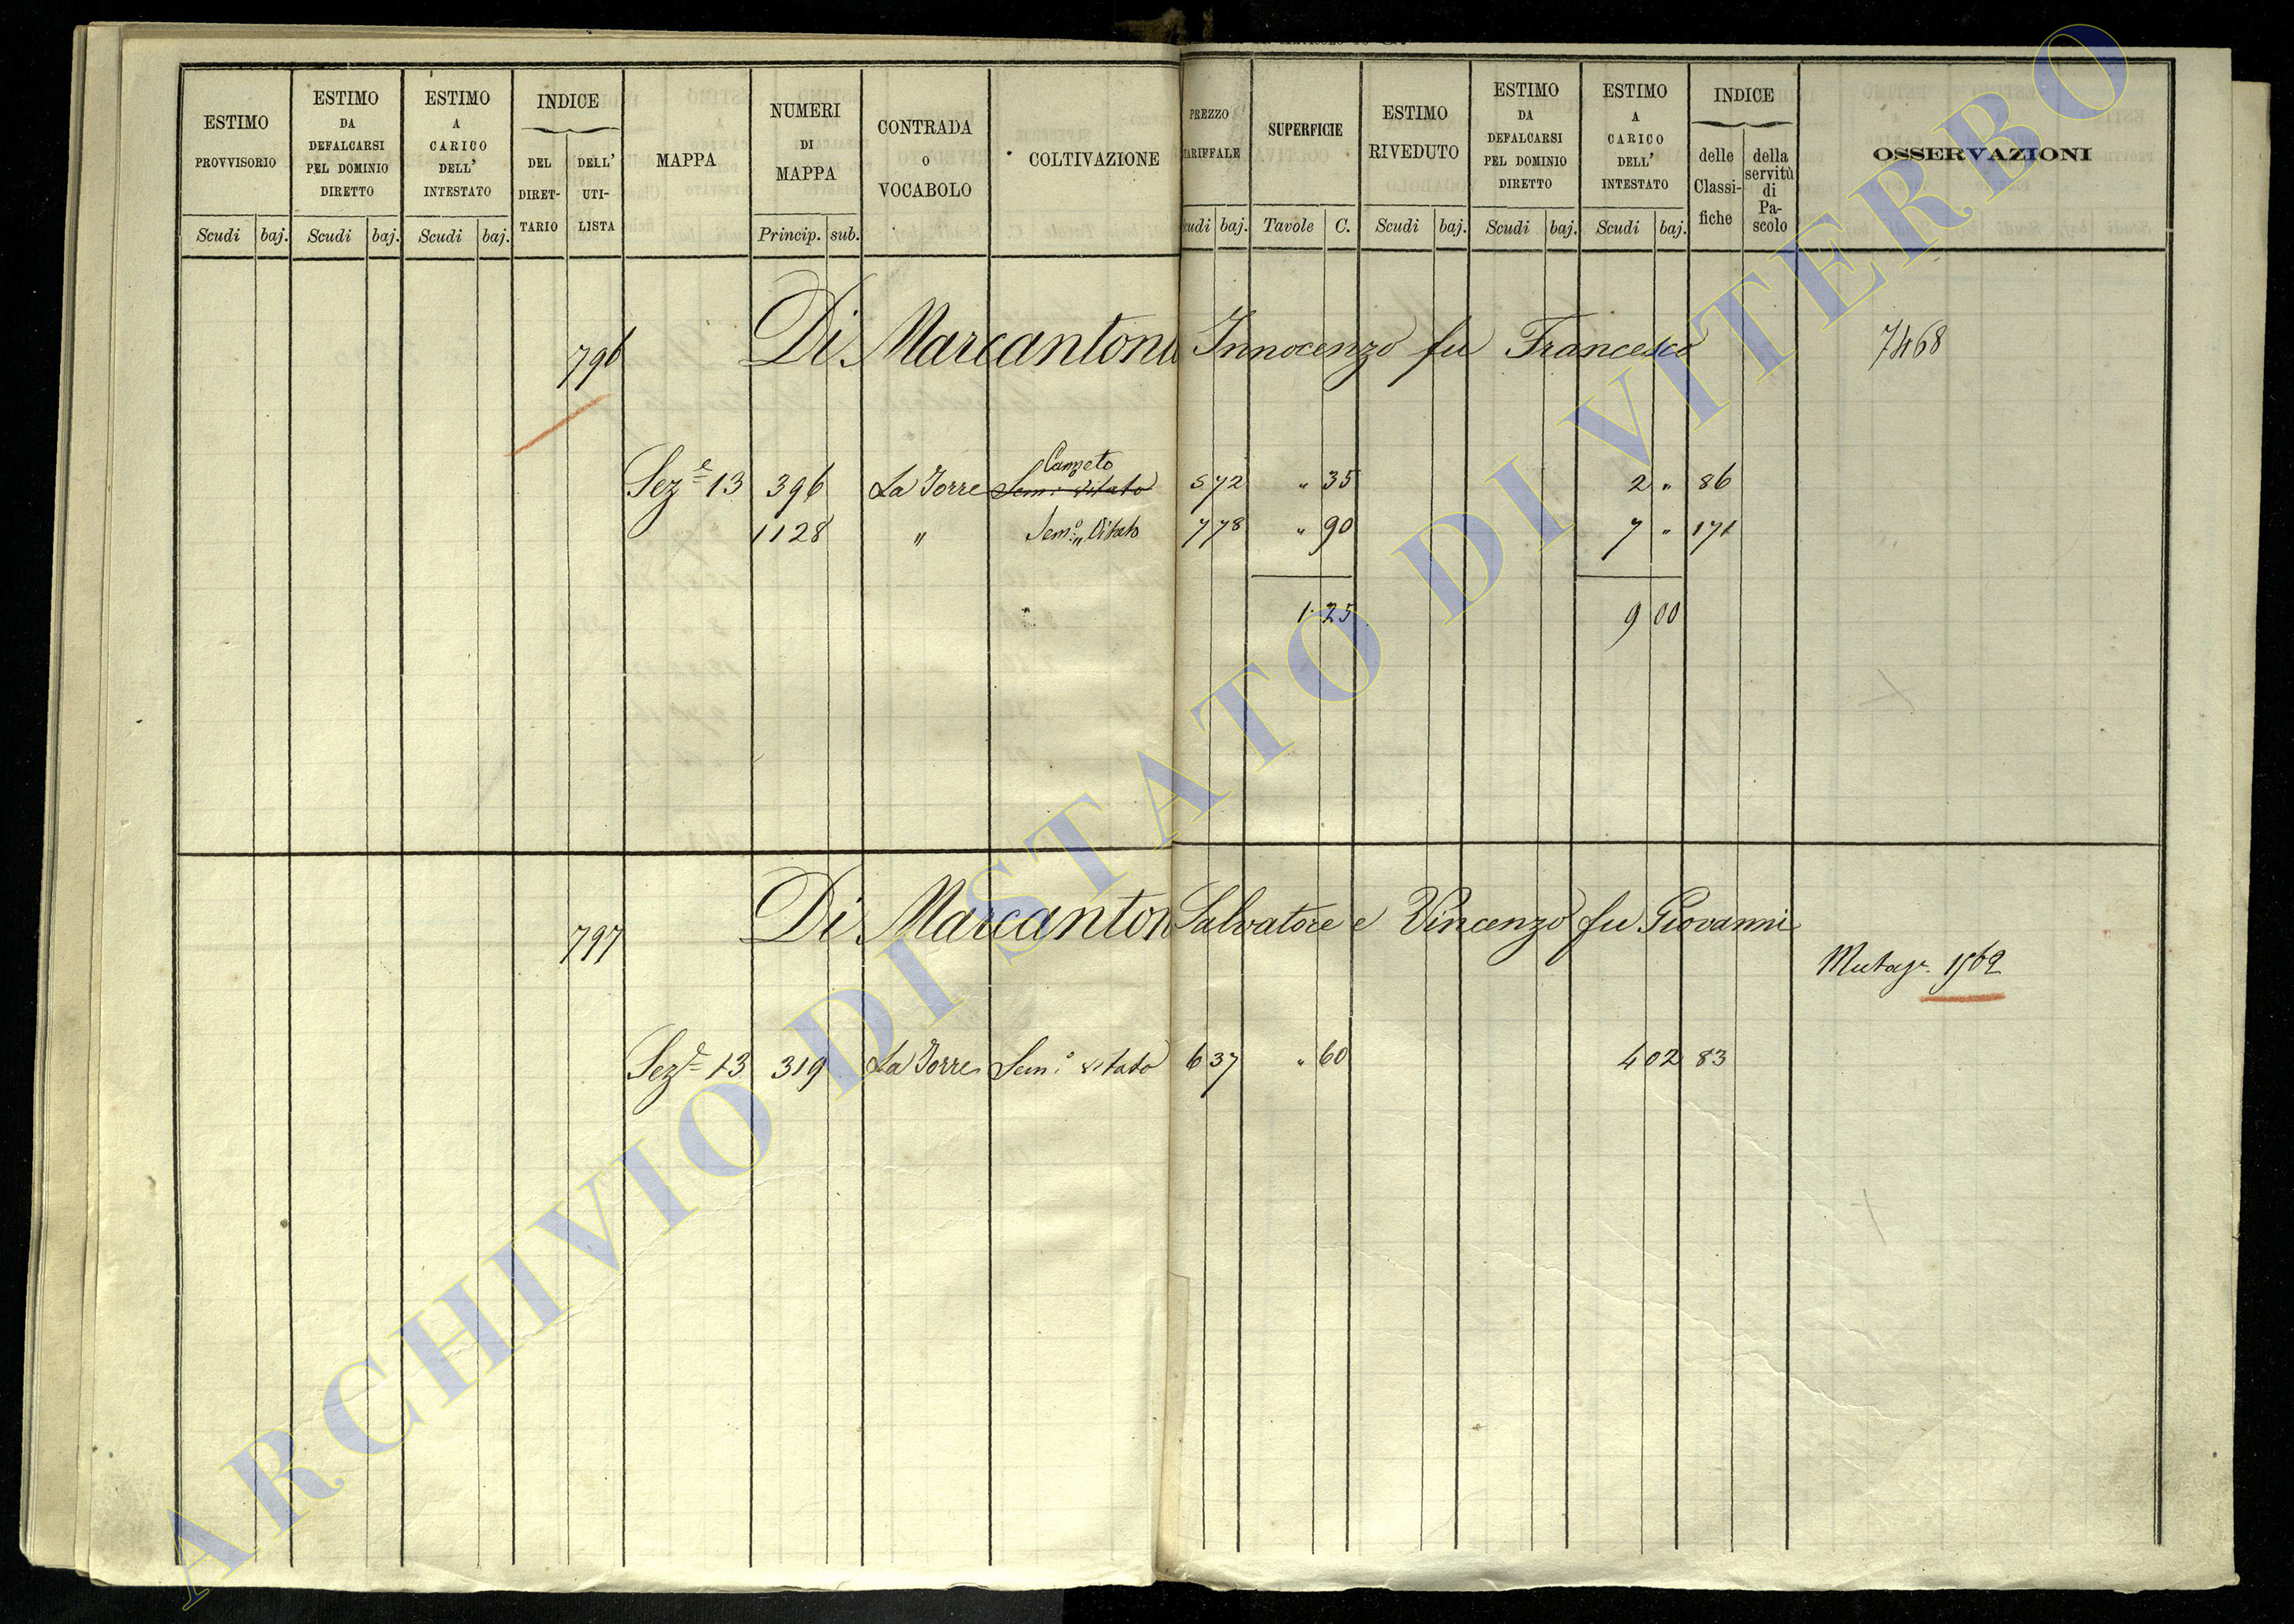 ESTIMO PROVVISORIO Scudi baj.
ESTIMO DA DEFALCARSI PEL DOMINIO DIRETTO Scudi baj.
ESTIMO A CARICO DELL' INTESTATO Scudi baj.
INDICE DEL DIRET-TARIO DELL' UTI-LISTA
MAPPA
NUMERI DI MAPPA Princip. sub.
CONTRADA O VOCABOLO
COLTIVAZIONE
PREZZO TARIFFALE udi baj.
SUPERFICIE Tavole C.
ESTIMO RIVEDUTO Scudi baj.
ESTIMO DA DEFALCARSI PEL DOMINIO DIRETTO Scudi baj.
ESTIMO A CARICO DELL' INTESTATO Scudi baj.
INDICE delle Classi-fiche della servitù di Pa-scolo
OSSERVAZIONI
796 Di Marcantonio Innocenzo fu Francesco 7468
Canneto
Sez.e 13 396 La Torre Sem.o Vitato 5 72 " 35 2 " 86
1128 " Sem.o Vitato 7 78 " 90 7 " 171
1 25 9 00
797 Di Marcanton Salvatore e Vincenzo fu Giovanni
Mutaz. 1562
Sez.e 13 319 La Torre Sem.o Vitato 6 37 " 60 4 02 83
ARCHIVIO DI STATO DI VITERBO